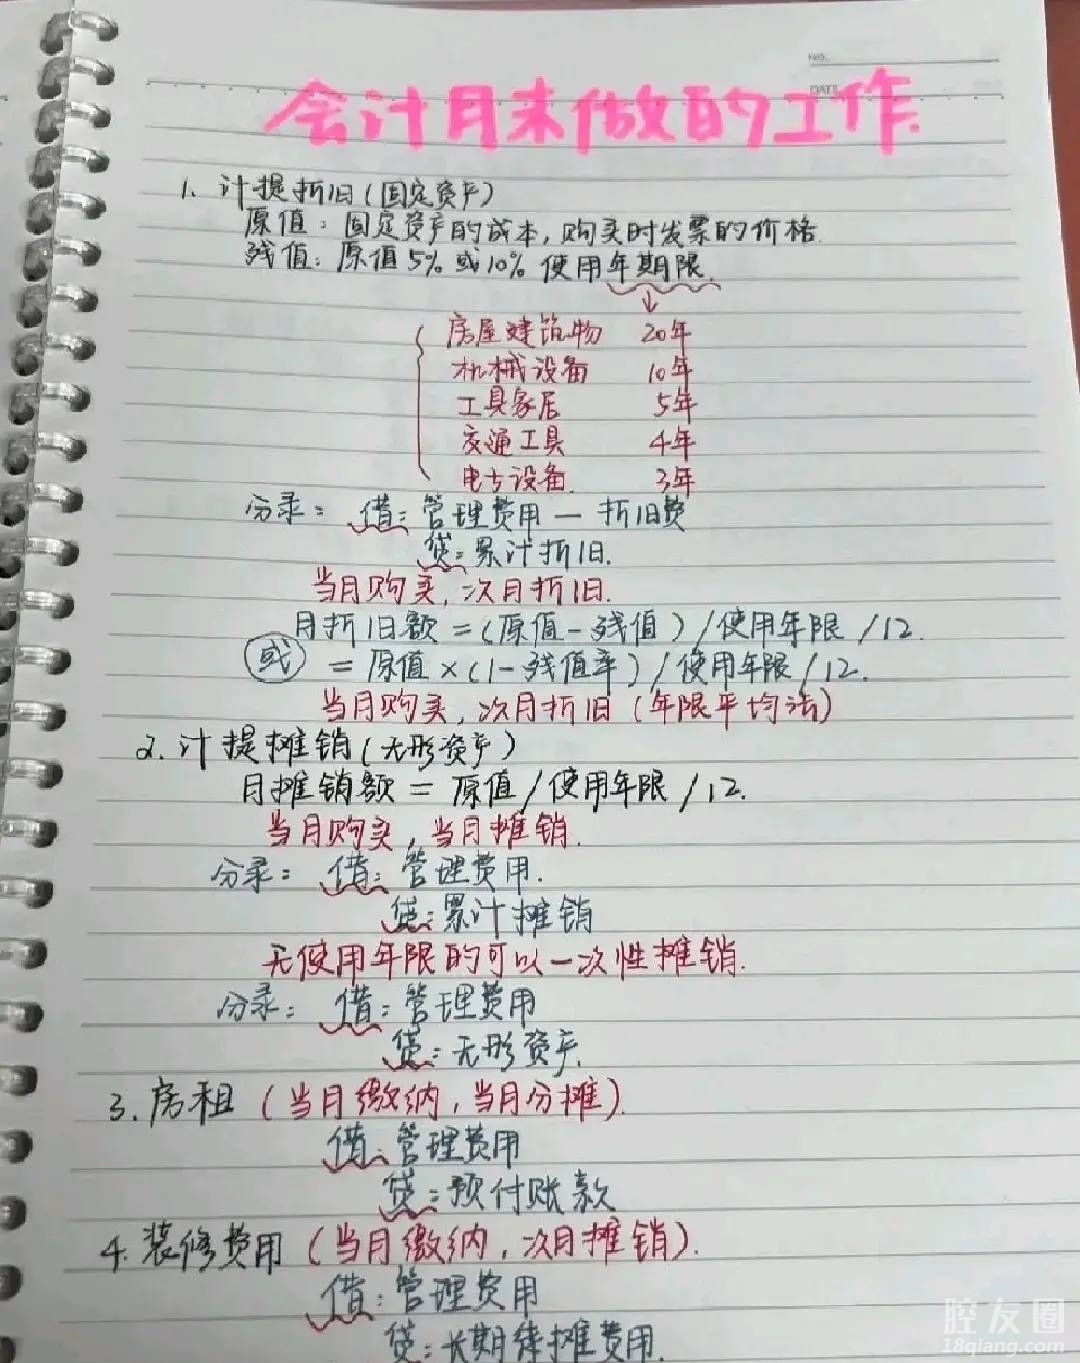 NO.
DATE
会计月末做的工作.
1. 计提折旧(固定资产)
原值: 固定资产的成本,购买时发票的价格.
残值: 原值5% 或10% 使用年期限.
↓
房屋建筑物 20年
机械设备 10年
工具家居 5年
交通工具 4年
电子设备. 3年
分录: 借: 管理费用 — 折旧费
贷: 累计折旧.
当月购买, 次月折旧.
月折旧额 =(原值-残值)/使用年限 /12.
或 = 原值×(1-残值率)/使用年限/12.
当月购买, 次月折旧 (年限平均法)
2. 计提摊销(无形资产)
月摊销额 = 原值/使用年限 /12.
当月购买, 当月摊销.
分录: 借: 管理费用.
贷: 累计摊销
无使用年限的可以一次性摊销.
分录: 借: 管理费用
贷: 无形资产.
3. 房租 (当月缴纳, 当月分摊).
借: 管理费用
贷: 预付账款
4. 装修费用 (当月缴纳, 次月摊销).
借: 管理费用
贷: 长期待摊费用.
腔友圈
18qiang.com